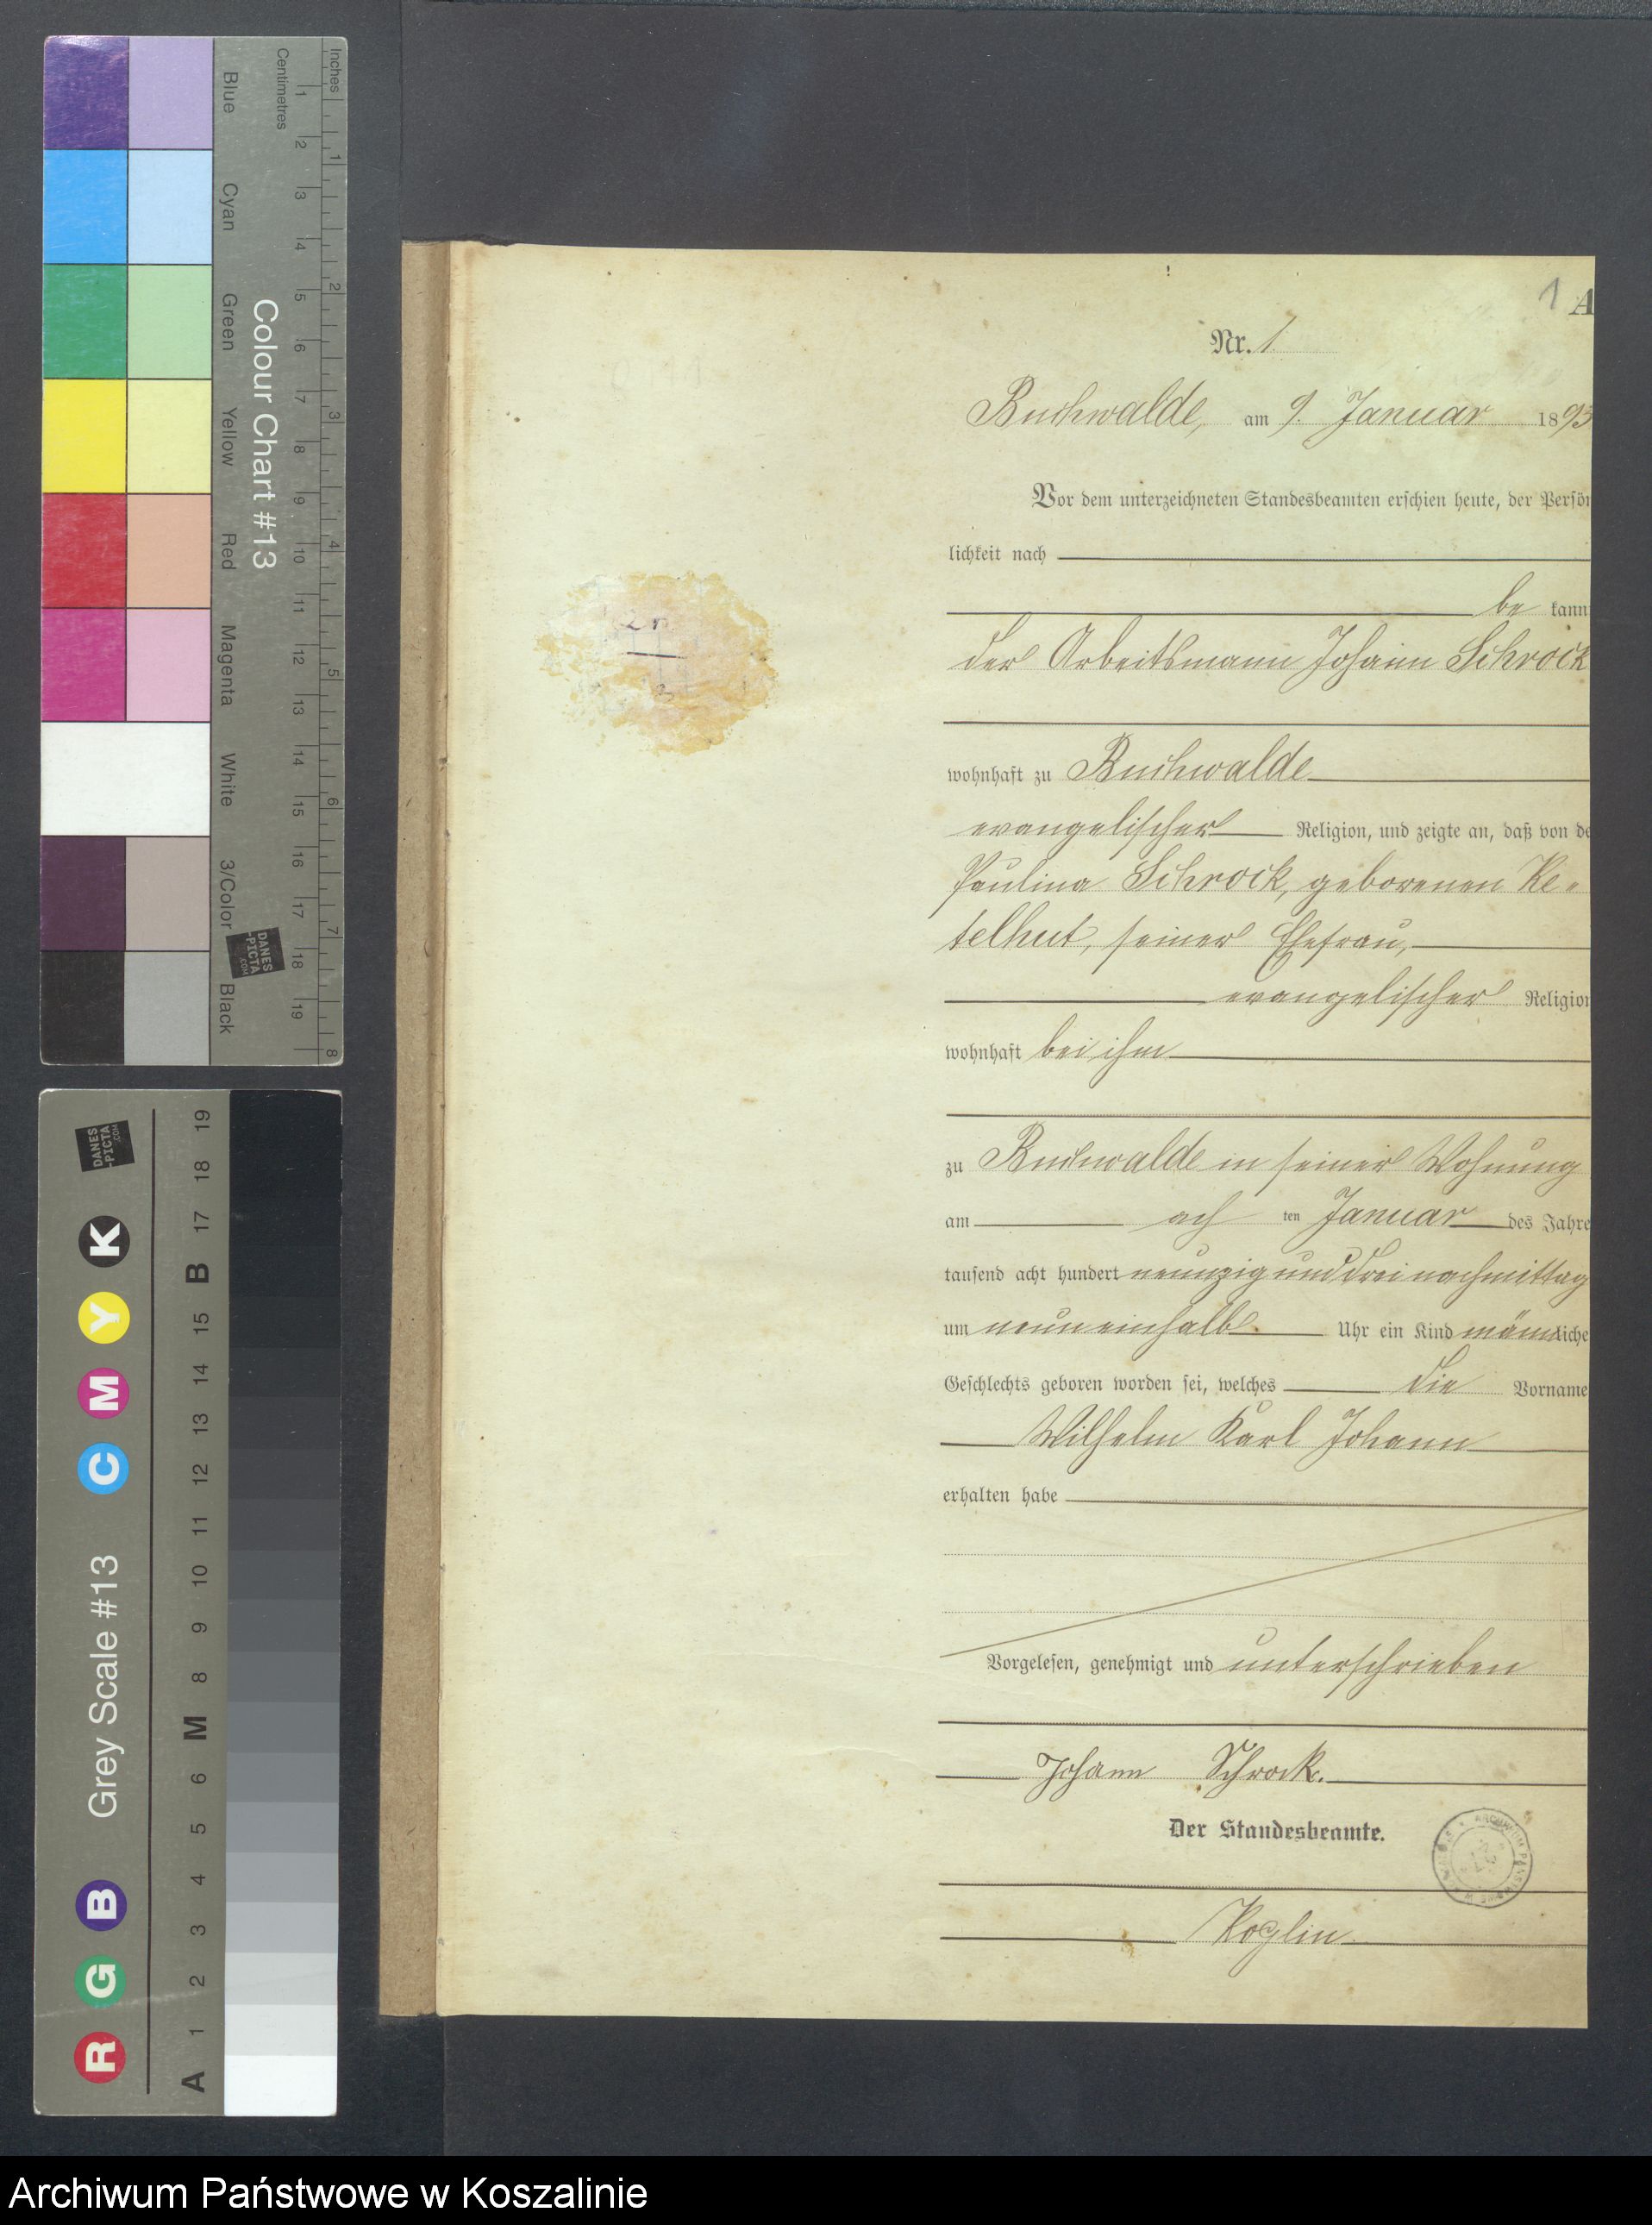 Inches
Centimetres
1 2 3 4 5 6 7 8 9 10 11 12 13 14 15 16 17 18 19
1 2 3 4 5 6 7 8
Colour Chart #13
Blue
Cyan
Green
Yellow
Red
Magenta
White
3/Color
Black
DANES
-PICTA
.COM
Grey Scale #13
R G B C M Y K
A 1 2 3 4 5 6 M 8 9 10 11 12 13 14 15 B 17 18 19
DANES
-PICTA
.COM
1 A
Nr. 1
Buchwalde, am 9. Januar 1893
Vor dem unterzeichneten Standesbeamten erschien heute, der Persön
lichkeit nach
be kann
der Arbeitsmann Johann Schrock
wohnhaft zu Buchwalde
evangelischer Religion, und zeigte an, daß von de
Paulina Schrock, geborenen Ke-
telhut, seiner Ehefrau,
evangelischer Religion
wohnhaft bei ihm
zu Buchwalde in seiner Wohnung
am ach ten Januar des Jahre
tausend acht hundert neunzig und drei nachmittag
um neuneinhalb Uhr ein Kind männliche
Geschlechts geboren worden sei, welches die Vorname
Wilhelm Karl Johann
erhalten habe
Vorgelesen, genehmigt und unterschrieben
Johann Schrock.
Der Standesbeamte.
Koglin
Archiwum Państwowe w Koszalinie